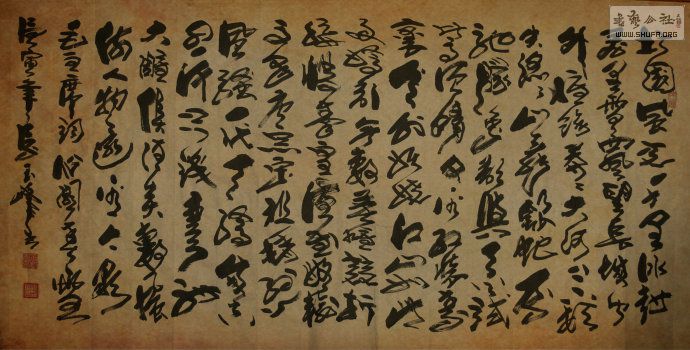 北国风光千里冰封
万里雪飘望长城内
外惟余莽莽大河上下顿
失滔滔山舞银蛇原
驰蜡象欲与天公试
比高须晴日看红装素
裹分外妖娆江山如此
多娇引无数英雄竞折
腰惜秦皇汉武略输
文采唐宗宋祖稍逊
风骚一代天骄成吉
思汗只识弯弓射
大雕俱往矣数风
流人物还看今朝
毛主席词沁园春雪
庚寅年
书艺公社
WWW.SHUFA.ORG